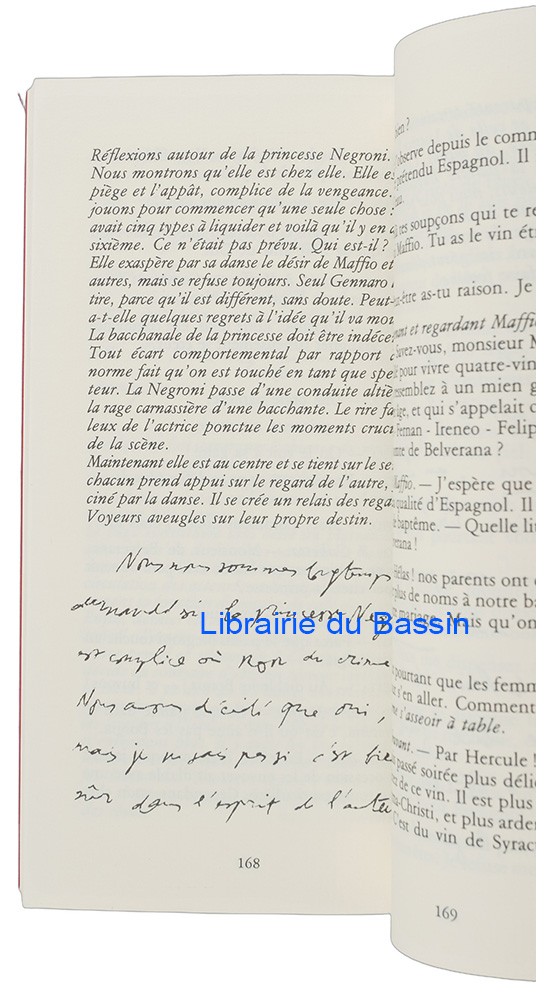 Réflexions autour de la princesse Negroni.
Nous montrons qu'elle est chez elle. Elle es
piège et l'appât, complice de la vengeance.
jouons pour commencer qu'une seule chose :
avait cinq types à liquider et voilà qu'il y en a
sixième. Ce n'était pas prévu. Qui est-il ?
Elle exaspère par sa danse le désir de Maffio et
autres, mais se refuse toujours. Seul Gennaro l
tire, parce qu'il est différent, sans doute. Peut-
a-t-elle quelques regrets à l'idée qu'il va mou
La bacchanale de la princesse doit être indécen
Tout écart comportemental par rapport à
norme fait qu'on est touché en tant que spe
teur. La Negroni passe d'une conduite altiè
la rage carnassière d'une bacchante. Le rire fa
leux de l'actrice ponctue les moments cruci
de la scène.
Maintenant elle est au centre et se tient sur le se
chacun prend appui sur le regard de l'autre,
ciné par la danse. Il se crée un relais des rega
Voyeurs aveugles sur leur propre destin.
Nous nous sommes longtemps
demandé si la princesse Neg
est complice ou non du crime
Nous avons décidé que oui,
mais je ne sais pas si c'est bie
sûr dans l'esprit de l'aute
168
ien ?
observe depuis le comm
prétendu Espagnol. Il
soupçons qui te re
Maffio. Tu as le vin éti
être as-tu raison. Je
et regardant Maffio
avez-vous, monsieur M
pour vivre quatre-vin
ressemblez à un mien g
âge, et qui s'appelait c
Fernan - Ireneo - Felip
de Belverana ?
Maffio. — J'espère que
qualité d'Espagnol. Il
baptême. — Quelle lit
erana !
Hélas ! nos parents ont
plus de noms à notre ba
mariage. Mais qu'on
pourtant que les femm
s'en aller. Comment
s'asseoir à table.
— Par Hercule !
passé soirée plus délic
de ce vin. Il est plus
-Christi, et plus arden
C'est du vin de Syrac
169
Librairie du Bassin